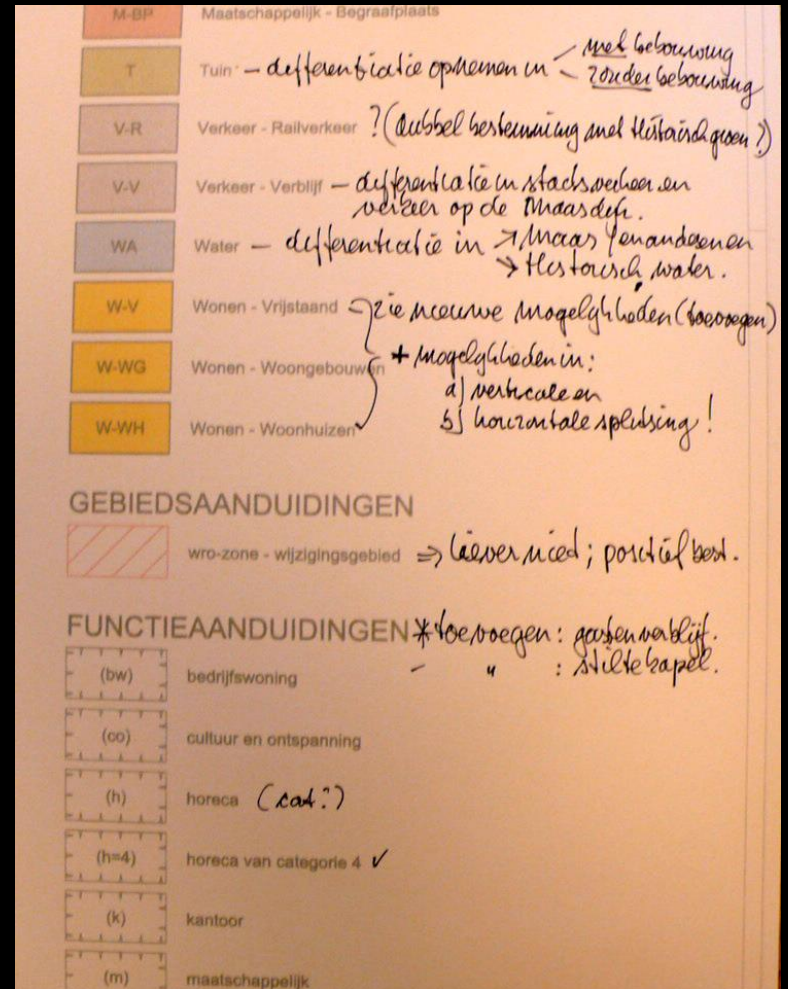 M-BP Maatschappelijk - Begraafplaats
T Tuin - differentiatie opnemen in - met bebouwing
- zonder bebouwing
V-R Verkeer - Railverkeer ? (dubbel bestemming met Historisch groen?)
V-V Verkeer - Verblijf - differentiatie in stadsverkeer en
verkeer op de Maasdijk.
WA Water - differentiatie in → Maas
→ Historisch water.
W-V Wonen - Vrijstaand zie nieuwe mogelijkheden (toevoegen)
W-WG Wonen - Woongebouwen + mogelijkheden in:
a) verticale en
W-WH Wonen - Woonhuizen b) horizontale splitsing!
GEBIEDSAANDUIDINGEN
wro-zone - wijzigingsgebied ⇒ liever nied; positief best.
FUNCTIEAANDUIDINGEN * toevoegen: gastenverblijf.
- " : stiltekapel.
(bw) bedrijfswoning
(co) cultuur en ontspanning
(h) horeca (cat?)
(h=4) horeca van categorie 4 ✓
(k) kantoor
(m) maatschappelijk